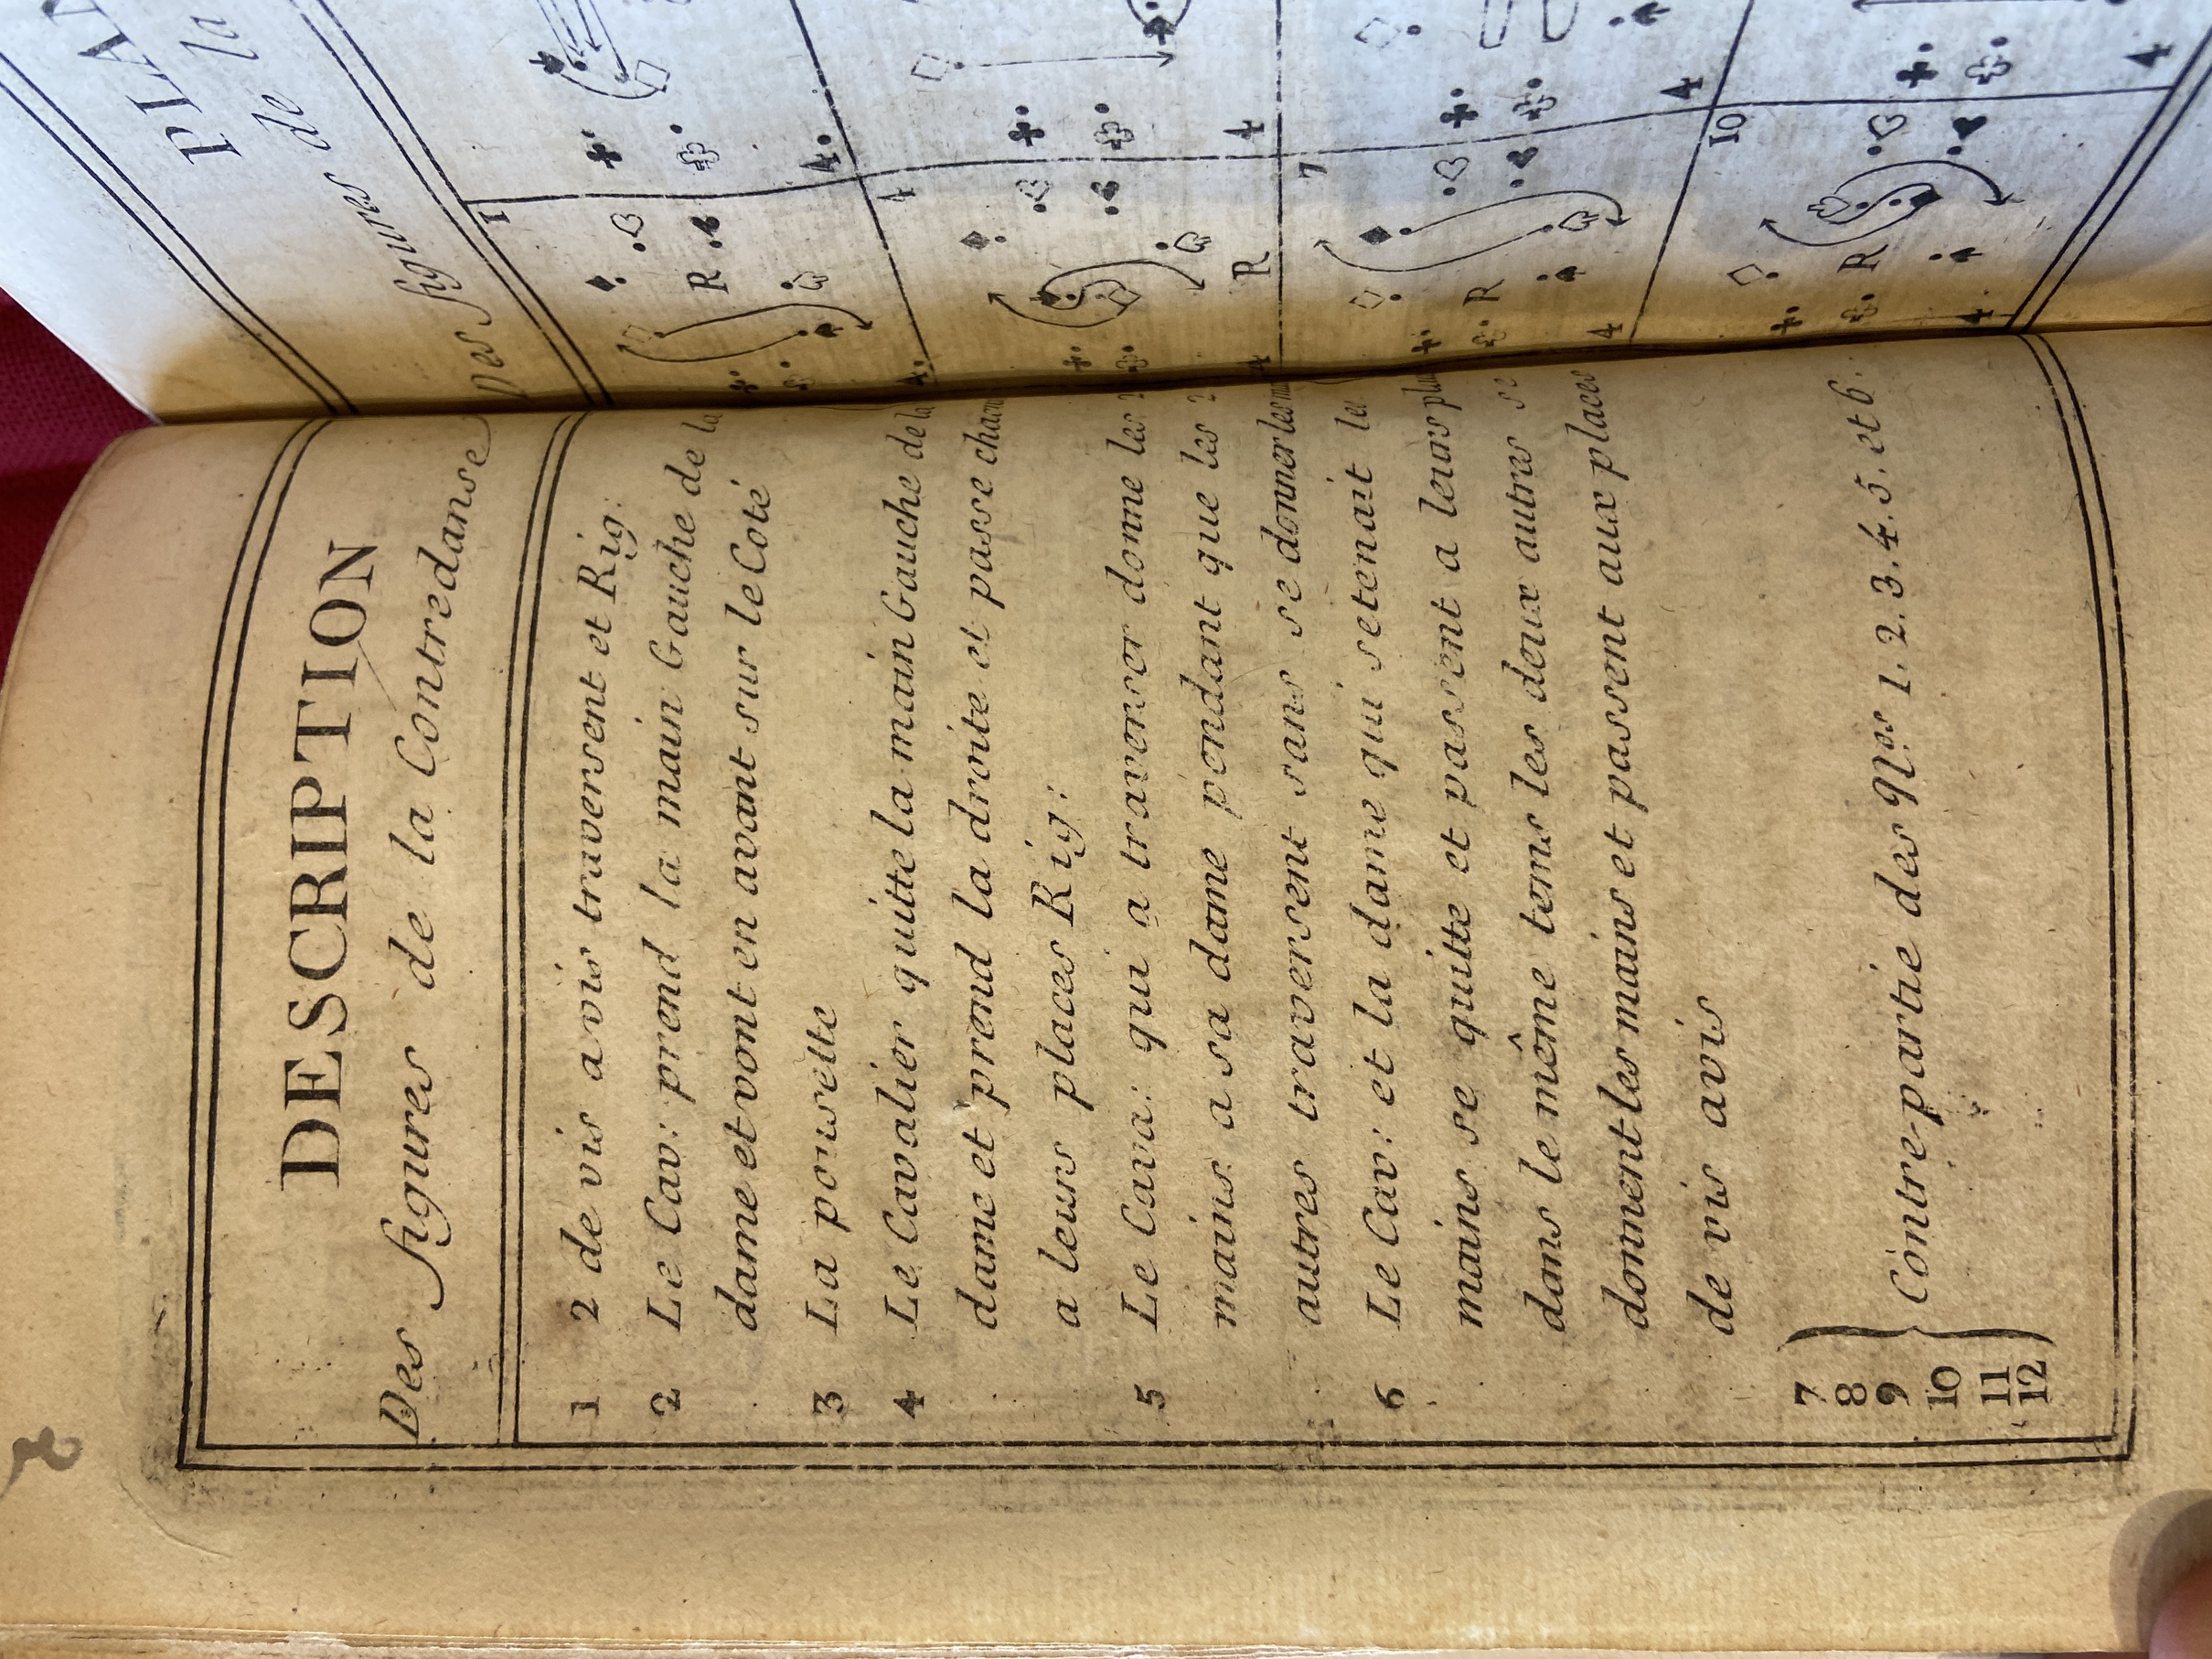 DESCRIPTION
Des figures de la Contredanse
1 2 de vis a vis traversent et Rig.
2 Le Cav: prend la main Gauche de la
dame et vont en avant sur le Coté
3 La pousette
4 Le Cavalier quitte la main Gauche de la
dame et prend la droite et passe
a leurs places Rig:
5 Le Cava: qui a traverser donne les 2
mains a sa dame pendant que les 2
autres traversent sans se donner les
6 Le Cav: et la dame qui se tenait les
mains se quitte et passent a leurs
dans le même tems les deux autres se
donnent les mains et passent aux places
de vis avis
7
8
9
10
11
12
Contre-partie des Nos. 1. 2. 3. 4. 5. et 6.
de la
Des figures de
1
R
4.
4.
4
R
4
4
7
R
4
4
10
R
4
4